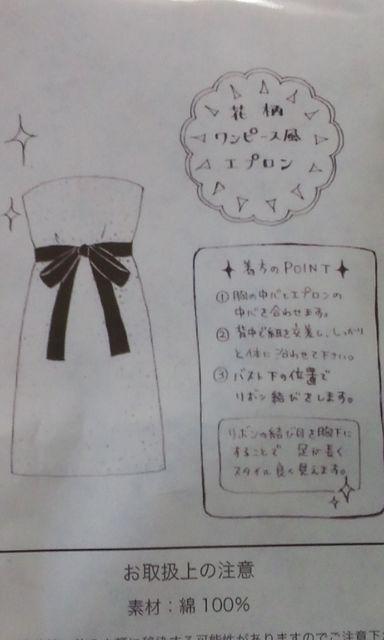 花柄
ワンピース風
エプロン
着方のPOINT
①胸の中心とエプロンの
中心を合わせます。
②背中で紐を交差し、しっかり
と体に沿わせて下さい。
③バスト下の位置で
リボン結びをします。
リボンの結び目を胸下に
することで 足が長く
スタイル良く見えます。
お取扱上の注意
素材：綿100%
に移染する可能性がありますのでご注意下